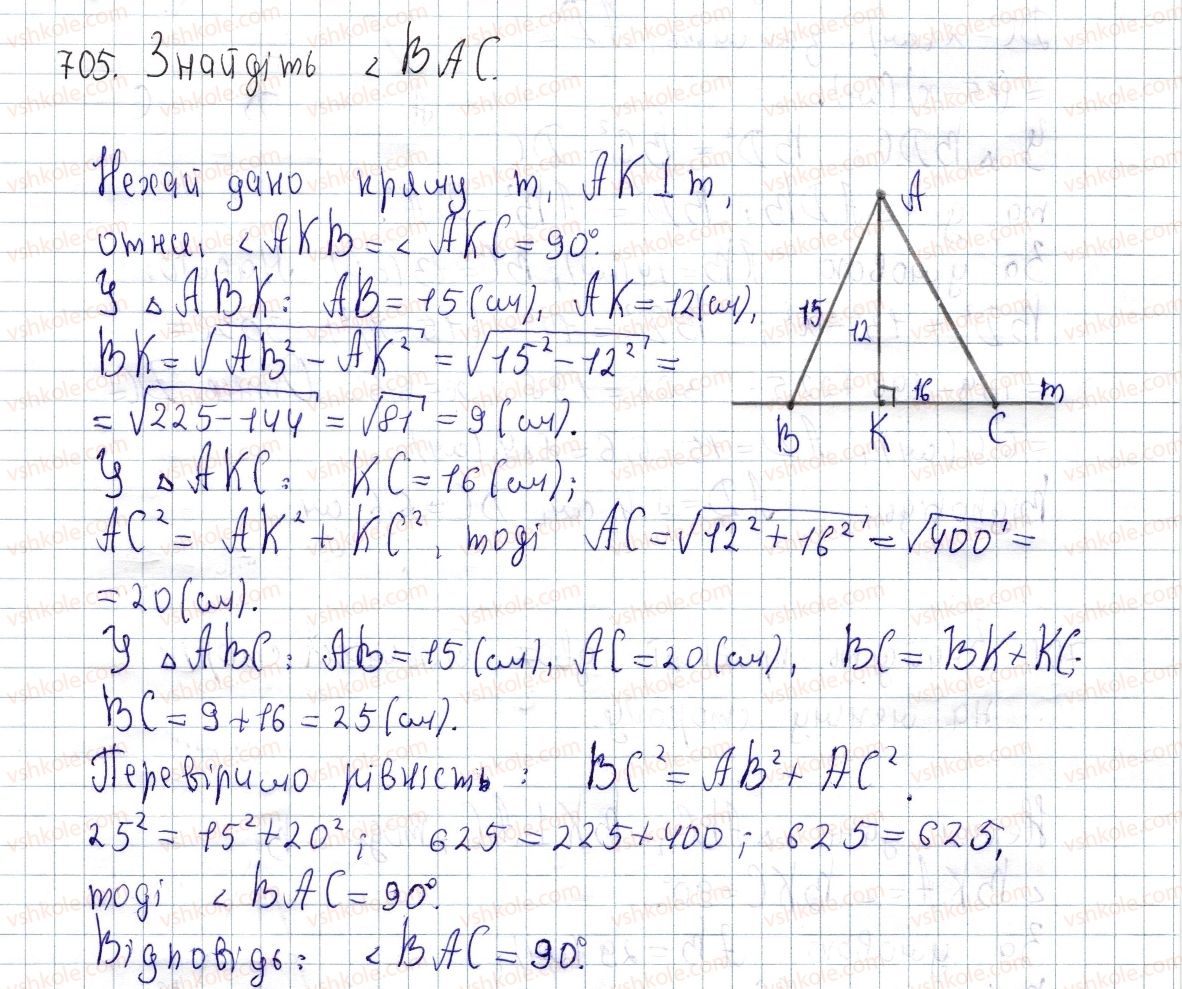 705. Знайдіть < BAC.
Нехай дано пряму m, AK ⊥ m,
отже, < AKB = < AKC = 90°.
У ▵ ABK: AB = 15 (см), AK = 12 (см),
BK = √AB² − AK² = √15² − 12² =
= √225 − 144 = √81 = 9 (см).
У ▵ AKC: KC = 16 (см);
AC² = AK² + KC², тоді AC = √12² + 16² = √400 =
= 20 (см).
У ▵ ABC: AB = 15 (см), AC = 20 (см), BC = BK + KC;
BC = 9 + 16 = 25 (см).
Перевіримо рівність: BC² = AB² + AC².
25² = 15² + 20²; 625 = 225 + 400; 625 = 625,
тоді < BAC = 90°.
Відповідь: < BAC = 90°.
A
15
12
16
m
B K C
vshkole.com